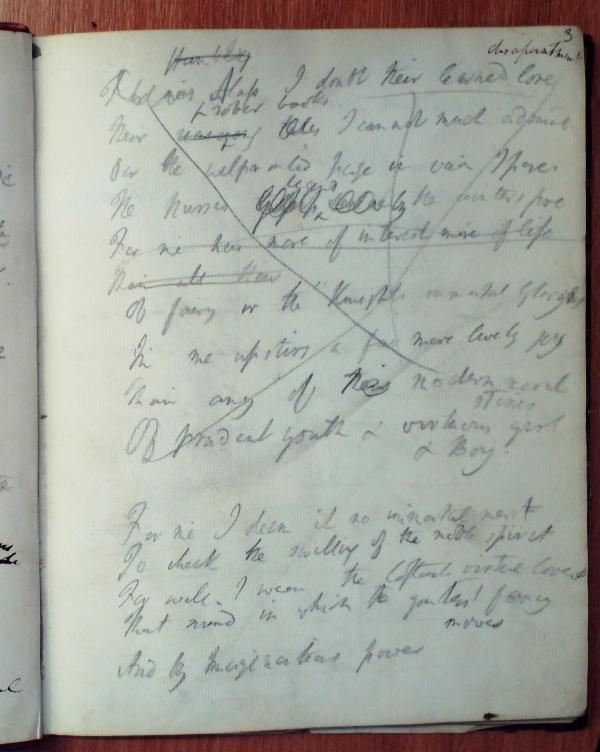 3
disapointment
Humbly
Alas I doubt their learned love
& sober books
Their tales I cannot much admire
Oer the well printed page in vain I pore
The Nurses legend the winters fire
For me has more of interest more of life
Than all their
Of fairy or the Knights immortal glories
In me upstirs a far more lively joy
Than any of their modern moral
stories
Of prudent youth & virtuous girl
& Boy.
For me I deem it no immortal merit
To check the swelling of the noble spirit
For well I ween the virtue loves
That mind in which the fancy
moves
And by Imaginations power